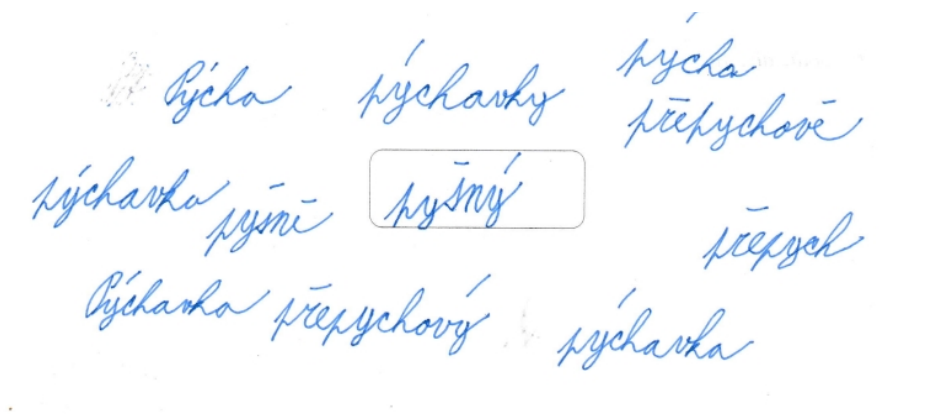 Pýcha pýchavky pýcha
přepychově
pýchavka pyšně pyšný přepych
Pýchavka přepychový pýchavka